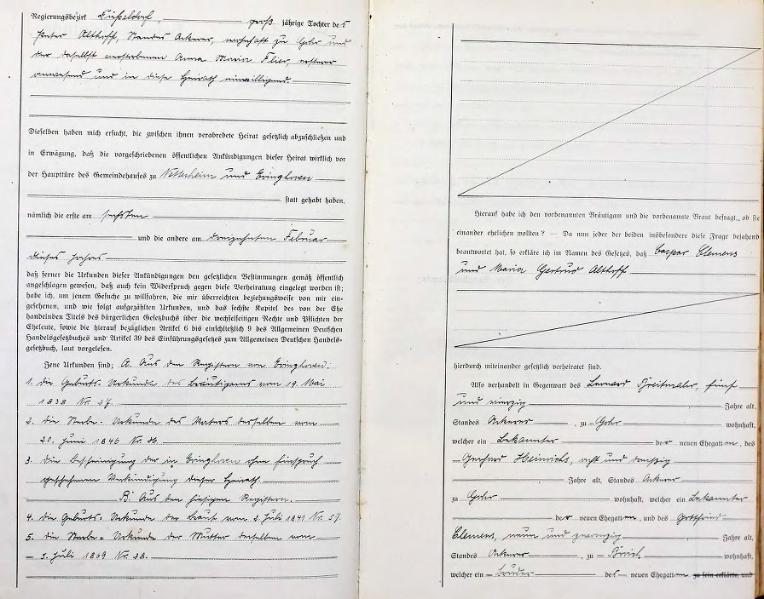 Regierungsbezirk Düsseldorf, groß jährige Tochter des
Peter Althoff, Standes Ackerer, wohnhaft zu Gohr und
der daselbst verstorbenen Anna Maria Flier, ersterer
anwesend und in diese Heirath einwilligend.
Dieselben haben mich ersucht, die zwischen ihnen verabredete Heirat gesetzlich abzuschließen und
in Erwägung, daß die vorgeschriebenen öffentlichen Ankündigungen dieser Heirat wirklich vor
der Haupttüre des Gemeindehauses zu und
statt gehabt haben,
nämlich die erste am sechsten
und die andere am dreizehnten Februar
dieses Jahres
daß ferner die Urkunden dieser Ankündigungen den gesetzlichen Bestimmungen gemäß öffentlich
angeschlagen gewesen, daß auch kein Widerspruch gegen diese Verheiratung eingelegt worden ist;
habe ich, um jenem Gesuche zu willfahren, die mir überreichten beziehungsweise von mir ein-
gesehenen, und wie folgt aufgezählten Urkunden, und das sechste Kapitel des von der Ehe
handelnden Titels des bürgerlichen Gesetzbuchs über die wechselseitigen Rechte und Pflichten der
Eheleute, sowie die hierauf bezüglichen Artikel 6 bis einschließlich 9 des Allgemeinen Deutschen
Handelsgesetzbuches und Artikel 39 des Einführungsgesetzes zum Allgemeinen Deutschen Handels-
gesetzbuch, laut vorgelesen.
Jene Urkunden sind; A. Aus den Registern von
1. die Geburts-Urkunde des Bräutigams vom 19. Mai
1838 No. 27.
2. die Sterbe-Urkunde des Vaters desselben vom
20. Juni 1846 No.
3. die Bescheinigung der in ohne Einspruch
geschehenen Verkündigung dieser Heirath.
B. Aus den hiesigen Registern.
4. die Geburts-Urkunde der Braut vom 2. Juli 1841 No. 57.
5. die Sterbe-Urkunde der Mutter derselben vom
5. Juli 1849 No. 28.
Hierauf habe ich den vorbenannten Bräutigam und die vorbenannte Braut befragt, ob sie
einander ehelichen wollten? — Da nun jeder der beiden insbesondere diese Frage bejahend
beantwortet hat, so erkläre ich im Namen des Gesetzes, daß Caspar Clemens
und Maria Gertrud Althoff
hierdurch miteinander gesetzlich verheiratet sind.
Also verhandelt in Gegenwart des Leonard fünf
und vierzig Jahre alt,
Standes Ackerer, zu Gohr wohnhaft,
welcher ein Bekannter der neuen Ehegatten, des
Gerhard Heinrichs, acht und dreißig
Jahre alt, Standes Ackerer
zu Gohr wohnhaft, welcher ein Bekannter
der neuen Ehegatten, und des Gottfried
Clemens, neun und zwanzig Jahre alt,
Standes Ackerer, zu wohnhaft,
welcher ein Bruder des neuen Ehegatten zu sein erklärte, und